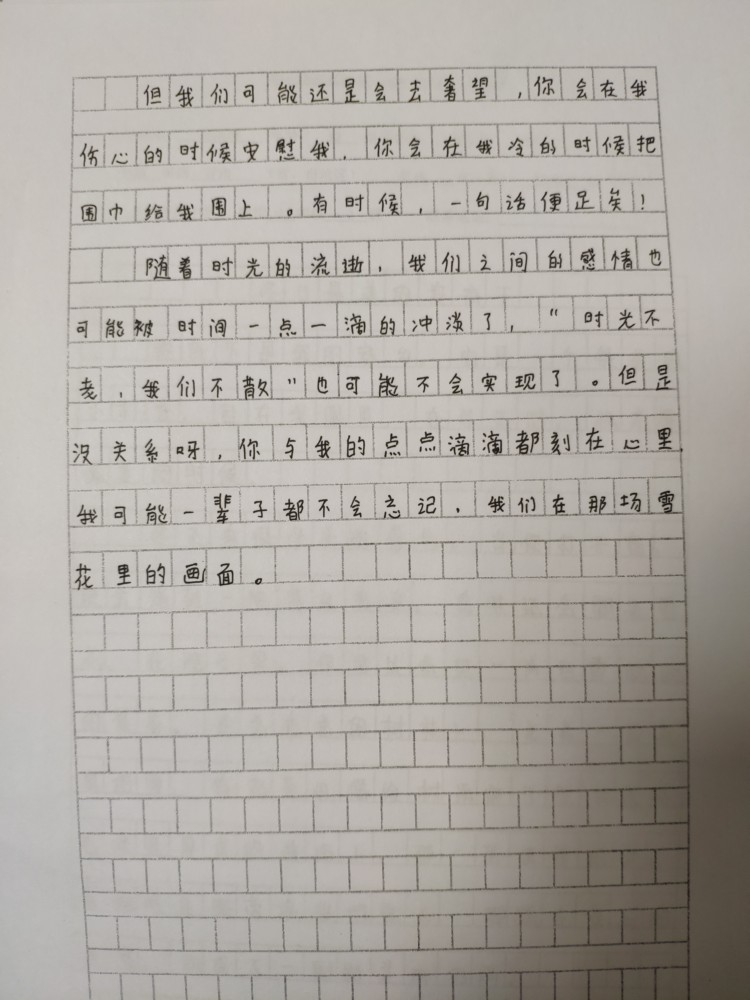 但我们可能还是会去奢望，你会在我
伤心的时候安慰我，你会在我冷的时候把
围巾给我围上。有时候，一句话便足矣！
随着时光的流逝，我们之间的感情也
可能被时间一点一滴的冲淡了，“时光不
老，我们不散”也可能不会实现了。但是
没关系呀，你与我的点点滴滴都刻在心里.
我可能一辈子都不会忘记，我们在那场雪
花里的画面。